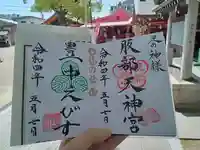 足の神様
服部天神宮
令和四年 五月七日
豊中えびす
令和四年 五月七日